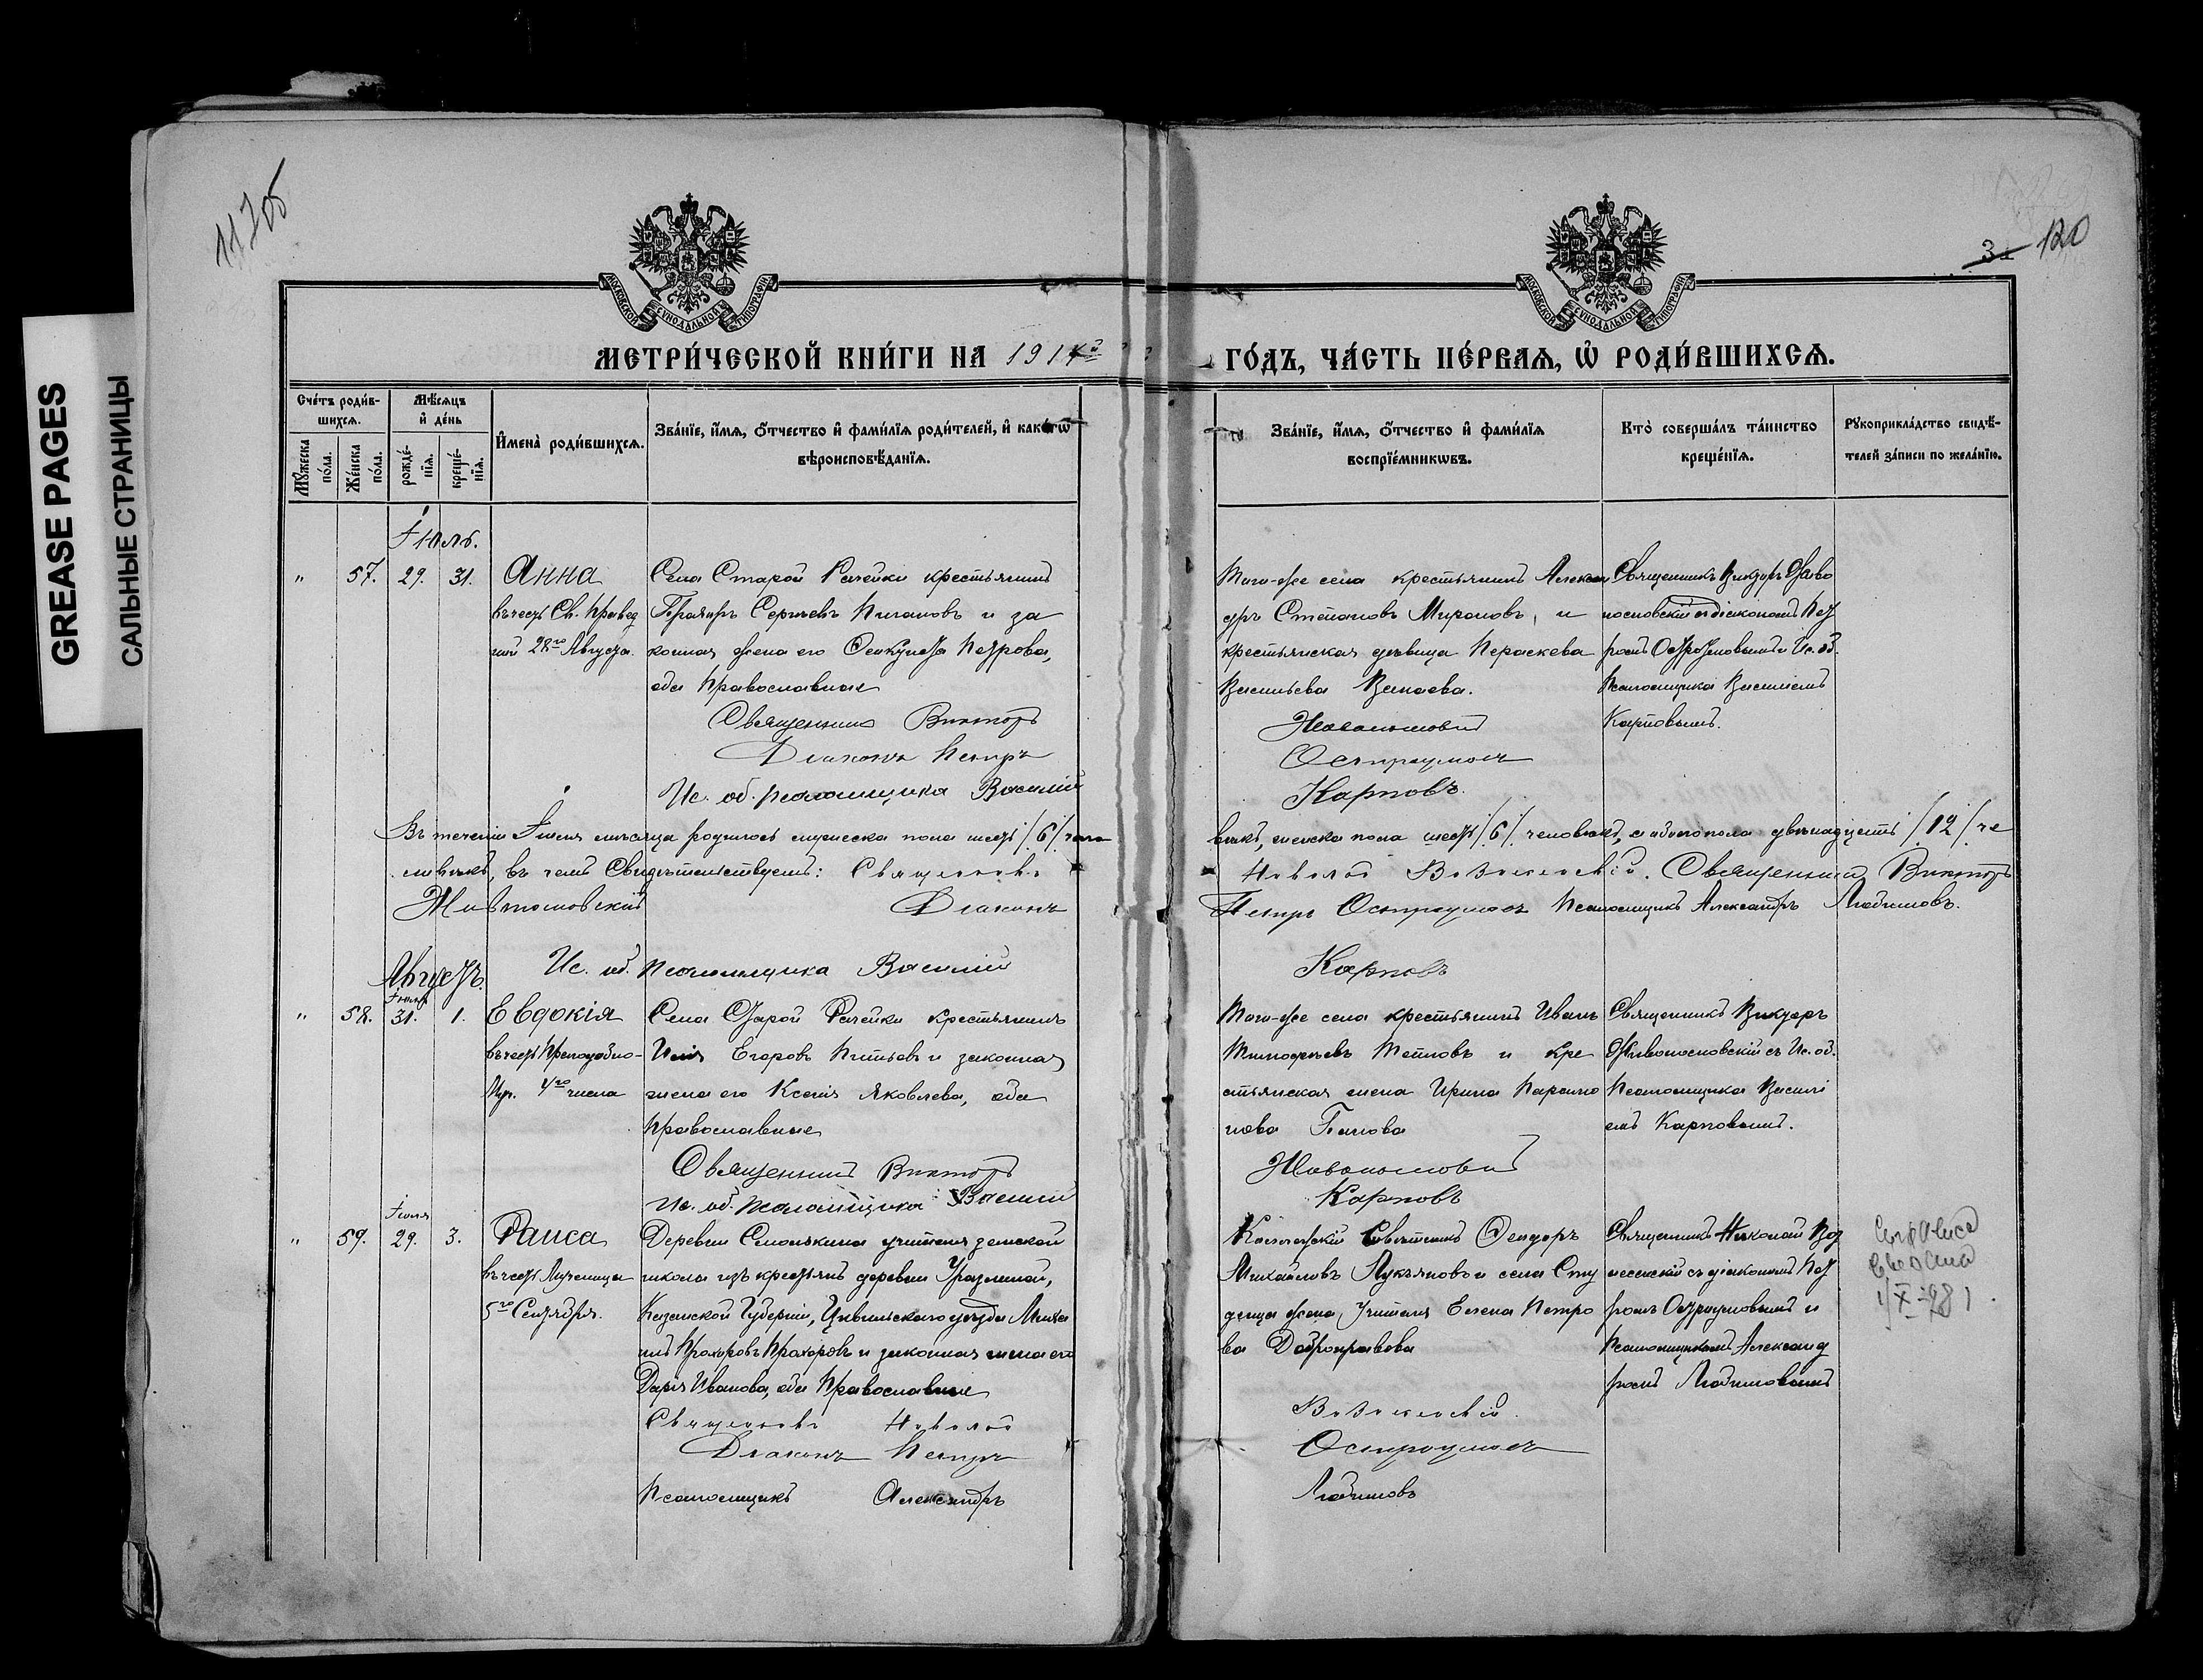 GREASE PAGES
САЛЬНЫЕ СТРАНИЦЫ
120
МОСКОВСКОЙ СѴНОДАЛЬНОЙ ТИПОГРАФІИ
МОСКОВСКОЙ СѴНОДАЛЬНОЙ ТИПОГРАФІИ
МЕТРИ́ЧЕСКОЙ КНИ́ГИ НА 1914й ГО́ДЪ, ЧА́СТЬ ПЕ́РВАѦ, Ѽ РОДИ́ВШИХСѦ.
Сче́тъ роди́в-
шихсѧ.
Мꙋ́жеска по́ла.
Же́нска по́ла.
Мѣ́сѧцъ
и҆ де́нь
рожде́-
нїѧ.
креще́-
нїѧ.
И҆мена̀ роди́вшихсѧ.
Зва́нїе, и҆́мѧ, ѻ҆́тчество и҆ фами́лїѧ роди́телей, и҆ како́гѡ
вѣроисповѣ́данїѧ.
Зва́нїе, и҆́мѧ, ѻ҆́тчество и҆ фами́лїѧ
воспрїе́мникѡвъ.
Кто̀ соверша́лъ та́инство
креще́нїѧ.
Рꙋкоприкла́дство свидѣ́-
телей за́писи по жела́нїю.
Іюль.
" 57. 29. 31. Анна
въ честь Св. Правед
28го Августа.
Села Старой Рачейки крестьянинъ
Сергѣевъ и за
конная жена его Петрова,
оба Православные
Священникъ Викторъ
Діаконъ Петръ
Ис. об. псаломщика Василій
Того-же села крестьянинъ Алексан
дръ Степановъ Мироновъ, и
крестьянская дѣвица Параскева
Васильева
Живоносновскій
Остроумовъ
Карповъ.
Священникъ Викторъ Живо
носновскій съ діакономъ Пет
ромъ Остроумовымъ и Ис. об.
Псаломщика Василіемъ
Карповымъ.
Въ теченіи Іюля мѣсяца родилось мужеска пола шесть /6/ чело
вѣкъ, женска пола шесть /6/ человѣкъ, а обоего пола двѣнадцать /12/ че
ловѣкъ, въ чемъ Свидѣтельствуемъ: Священникъ
Николай Вознесенскій. Священникъ Викторъ
Живоносновскій Діаконъ
Петръ Остроумовъ Псаломщикъ Александръ Любимовъ.
Ис. об. псаломщика Василій Карповъ
Августъ.
" 58. Іюля 31. 1. Евдокія
въ честь Преподобно-
Мр. 4го числа
Села Старой Рачейки крестьянинъ
Илія Егоровъ и законная
жена его Ксенія Яковлева, оба
Православные
Священникъ Викторъ
Ис. об. псаломщика Василій
Того-же села крестьянинъ Иванъ
Тимофѣевъ и кре
стьянская жена Ирина
нова
Живоносновскій
Карповъ
Священникъ Викторъ
Живоносновскій съ Ис. об.
Псаломщика Василі
емъ Карповымъ.
" 59. Іюля 29. 3. Раиса
въ честь Мученицы
5го Сентября.
Деревни Смолькина учитель земской
школы изъ крестьянъ деревни
Казанской Губерніи, Цивильскаго уѣзда Миха
илъ Прохоровъ Прохоровъ и законная жена его
Дарія Иванова, оба Православные
Священникъ Николай
Діаконъ Петръ
Псаломщикъ Александръ
Совѣтникъ Ѳеодоръ
Михайловъ Лукьяновъ и села Сту
денца жена Учителя Елена Петро
ва Добронравова
Вознесенскій.
Остроумовъ
Любимовъ
Священникъ Николай Воз
несенскій съ діакономъ Пет
ромъ Остроумовымъ и
Псаломщикомъ Александ
ромъ Любимовымъ